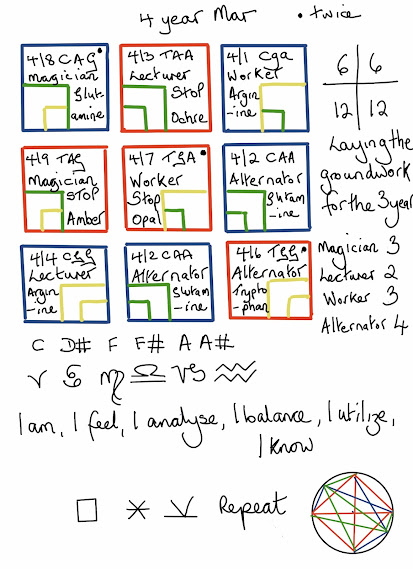 4 year Mar
• twice
4/8 CAG•
Magician
Glut-
amine
4/3 TAA
Lecturer
Stop
Ochre
4/1 Cga
Worker
Argin
-ine
6 6
12 12
Laying the
groundwork
for the 3 year
4/9 TAG
Magician
STOP
Amber
4/7 TGA•
Worker
Stop
Opal
4/2 CAA
Alternator
Glutam
-ine
4/4 CGG
Lecturer
Argin
-ine
4/2 CAA
Alternator
Glutam
-ine
4/6 TGG
Alternator
Trypto
-phan
Magician 3
Lecturer 2
Worker 3
Alternator 4
C D# F F# A A#
♈ ♋ ♍ ♎ ♑ ♒
I am, I feel, I analyse, I balance, I utilize,
I know
Repeat